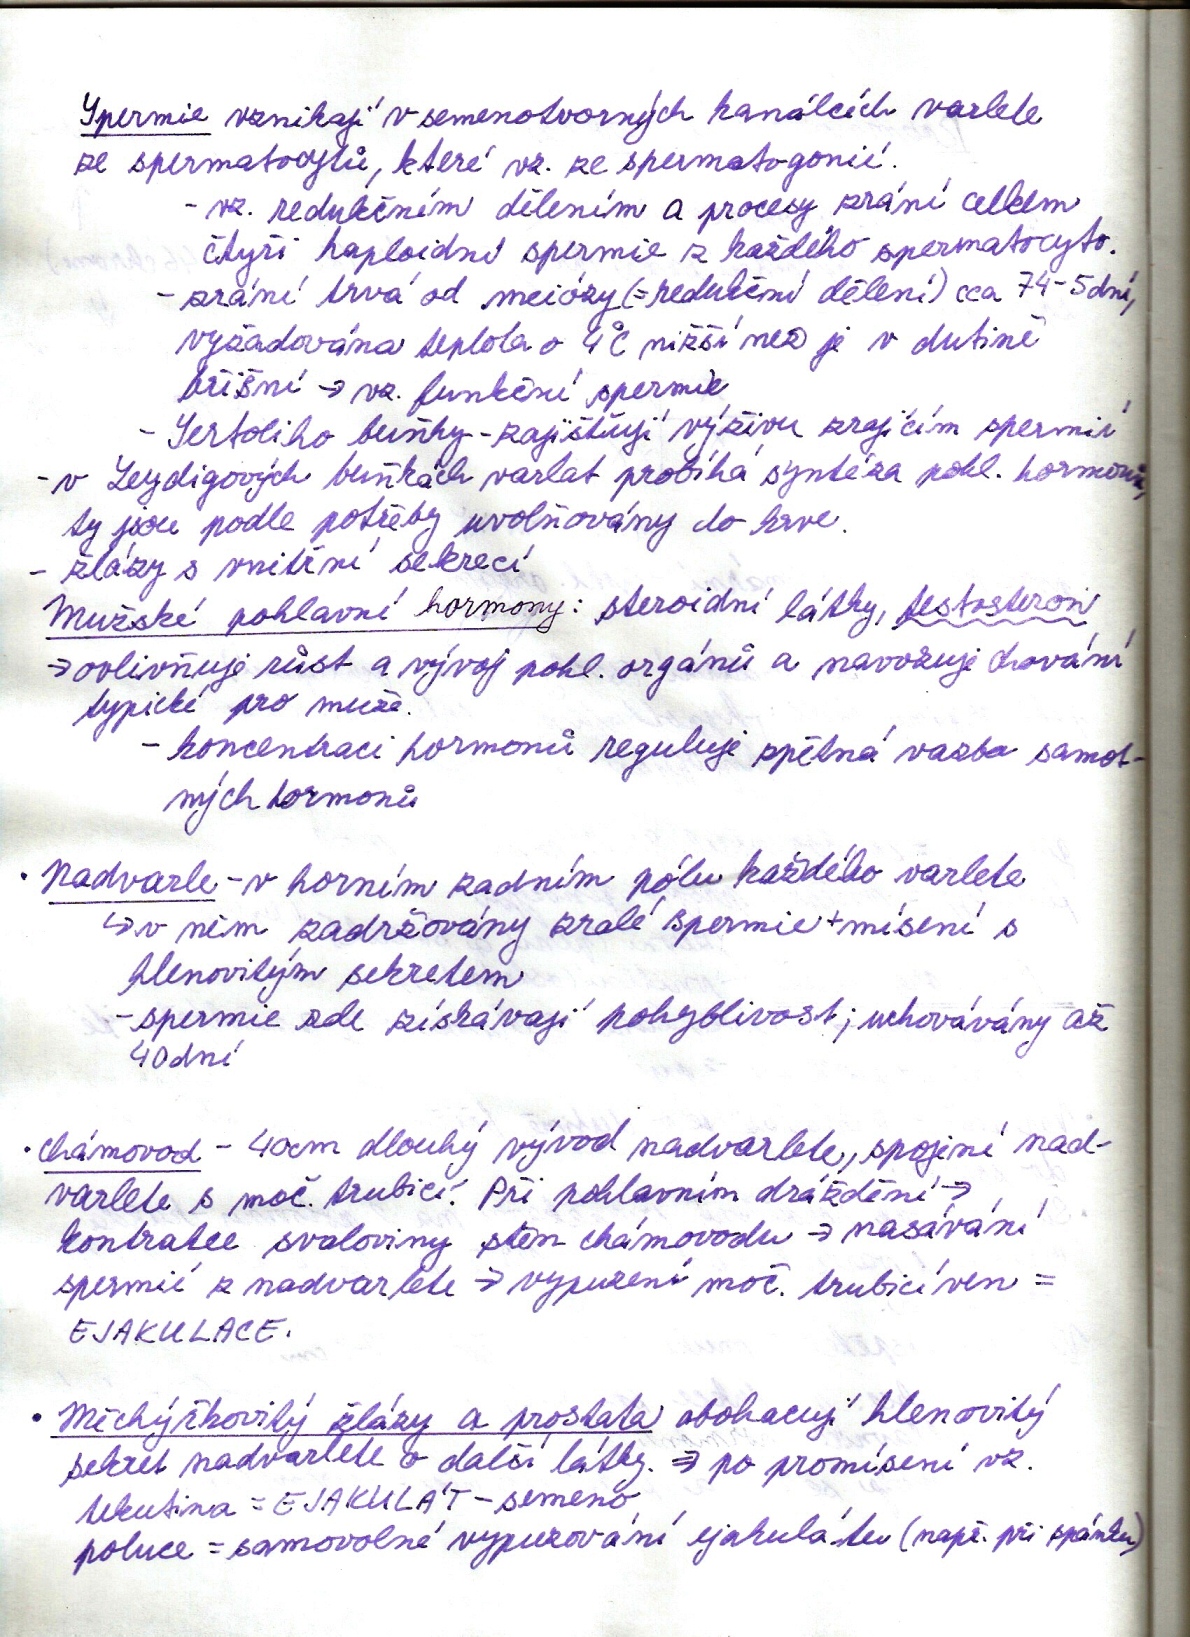 Spermie vznikají v semenotvorných kanálcích varlete
ze spermatocytů, které vz. ze spermatogonií.
- vz. redukčním dělením a procesy zrání celkem
čtyři haploidní spermie z každého spermatocyto.
- zrání trvá od meiózy (= redukční dělení) cca 74-5dní,
vyžadována teplota o 4°C nižší než je v dutině
břišní → vz. funkční spermie
- Sertoliho buňky - zajišťují výživu zrajícím spermií
- v Leydigových buňkách varlat probíhá syntéza pohl. hormonů,
ty jsou podle potřeby uvolňovány do krve.
- žlázy s vnitřní sekrecí
Mužské pohlavní hormony: steroidní látky, testosteron
→ ovlivňuje růst a vývoj pohl. orgánů a navozuje chování
typické pro muže.
- koncentraci hormonů reguluje zpětná vazba samot-
ných hormonů
• Nadvarle - v horním zadním pólu každého varlete
↳ v něm zadržovány zralé spermie + mísení s
hlenovitým sekretem
- spermie zde získávají pohyblivost; uchovávány až
40dní
• Chámovod - 40cm dlouhý vývod nadvarlete, spojení nad-
varlete s moč. trubicí. Při pohlavním dráždění →
kontrakce svaloviny stěn chámovodu → nasávání
spermií z nadvarlete → vypuzení moč. trubicí ven =
EJAKULACE.
• Měchýřkovitý žlázy a prostata obohacují hlenovitý
sekret nadvarlete o další látky. ⇒ po promísení vz.
tekutina = EJAKULÁT - semeno
poluce = samovolné vypuzování ejakulátu (např. při spánku)